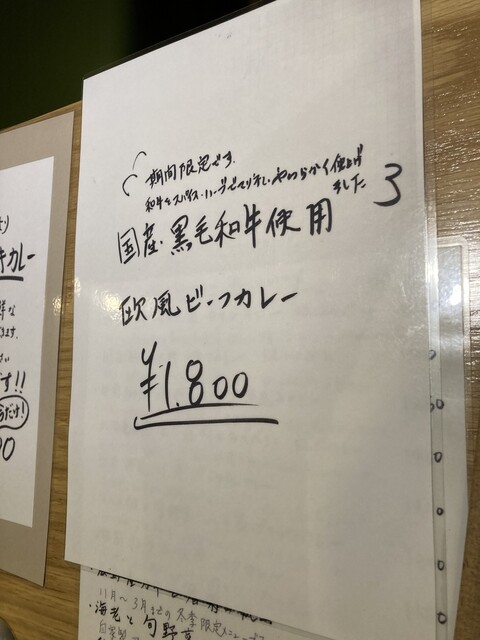 期間限定です。
和牛をスパイス・ハーブでマリネし、やわらかく仕上げ
ました
国産・黒毛和牛使用
欧風ビーフカレー
¥1.800
カレー
です!!
11月〜3月までの冬季限定メニューです
・海老と旬野菜